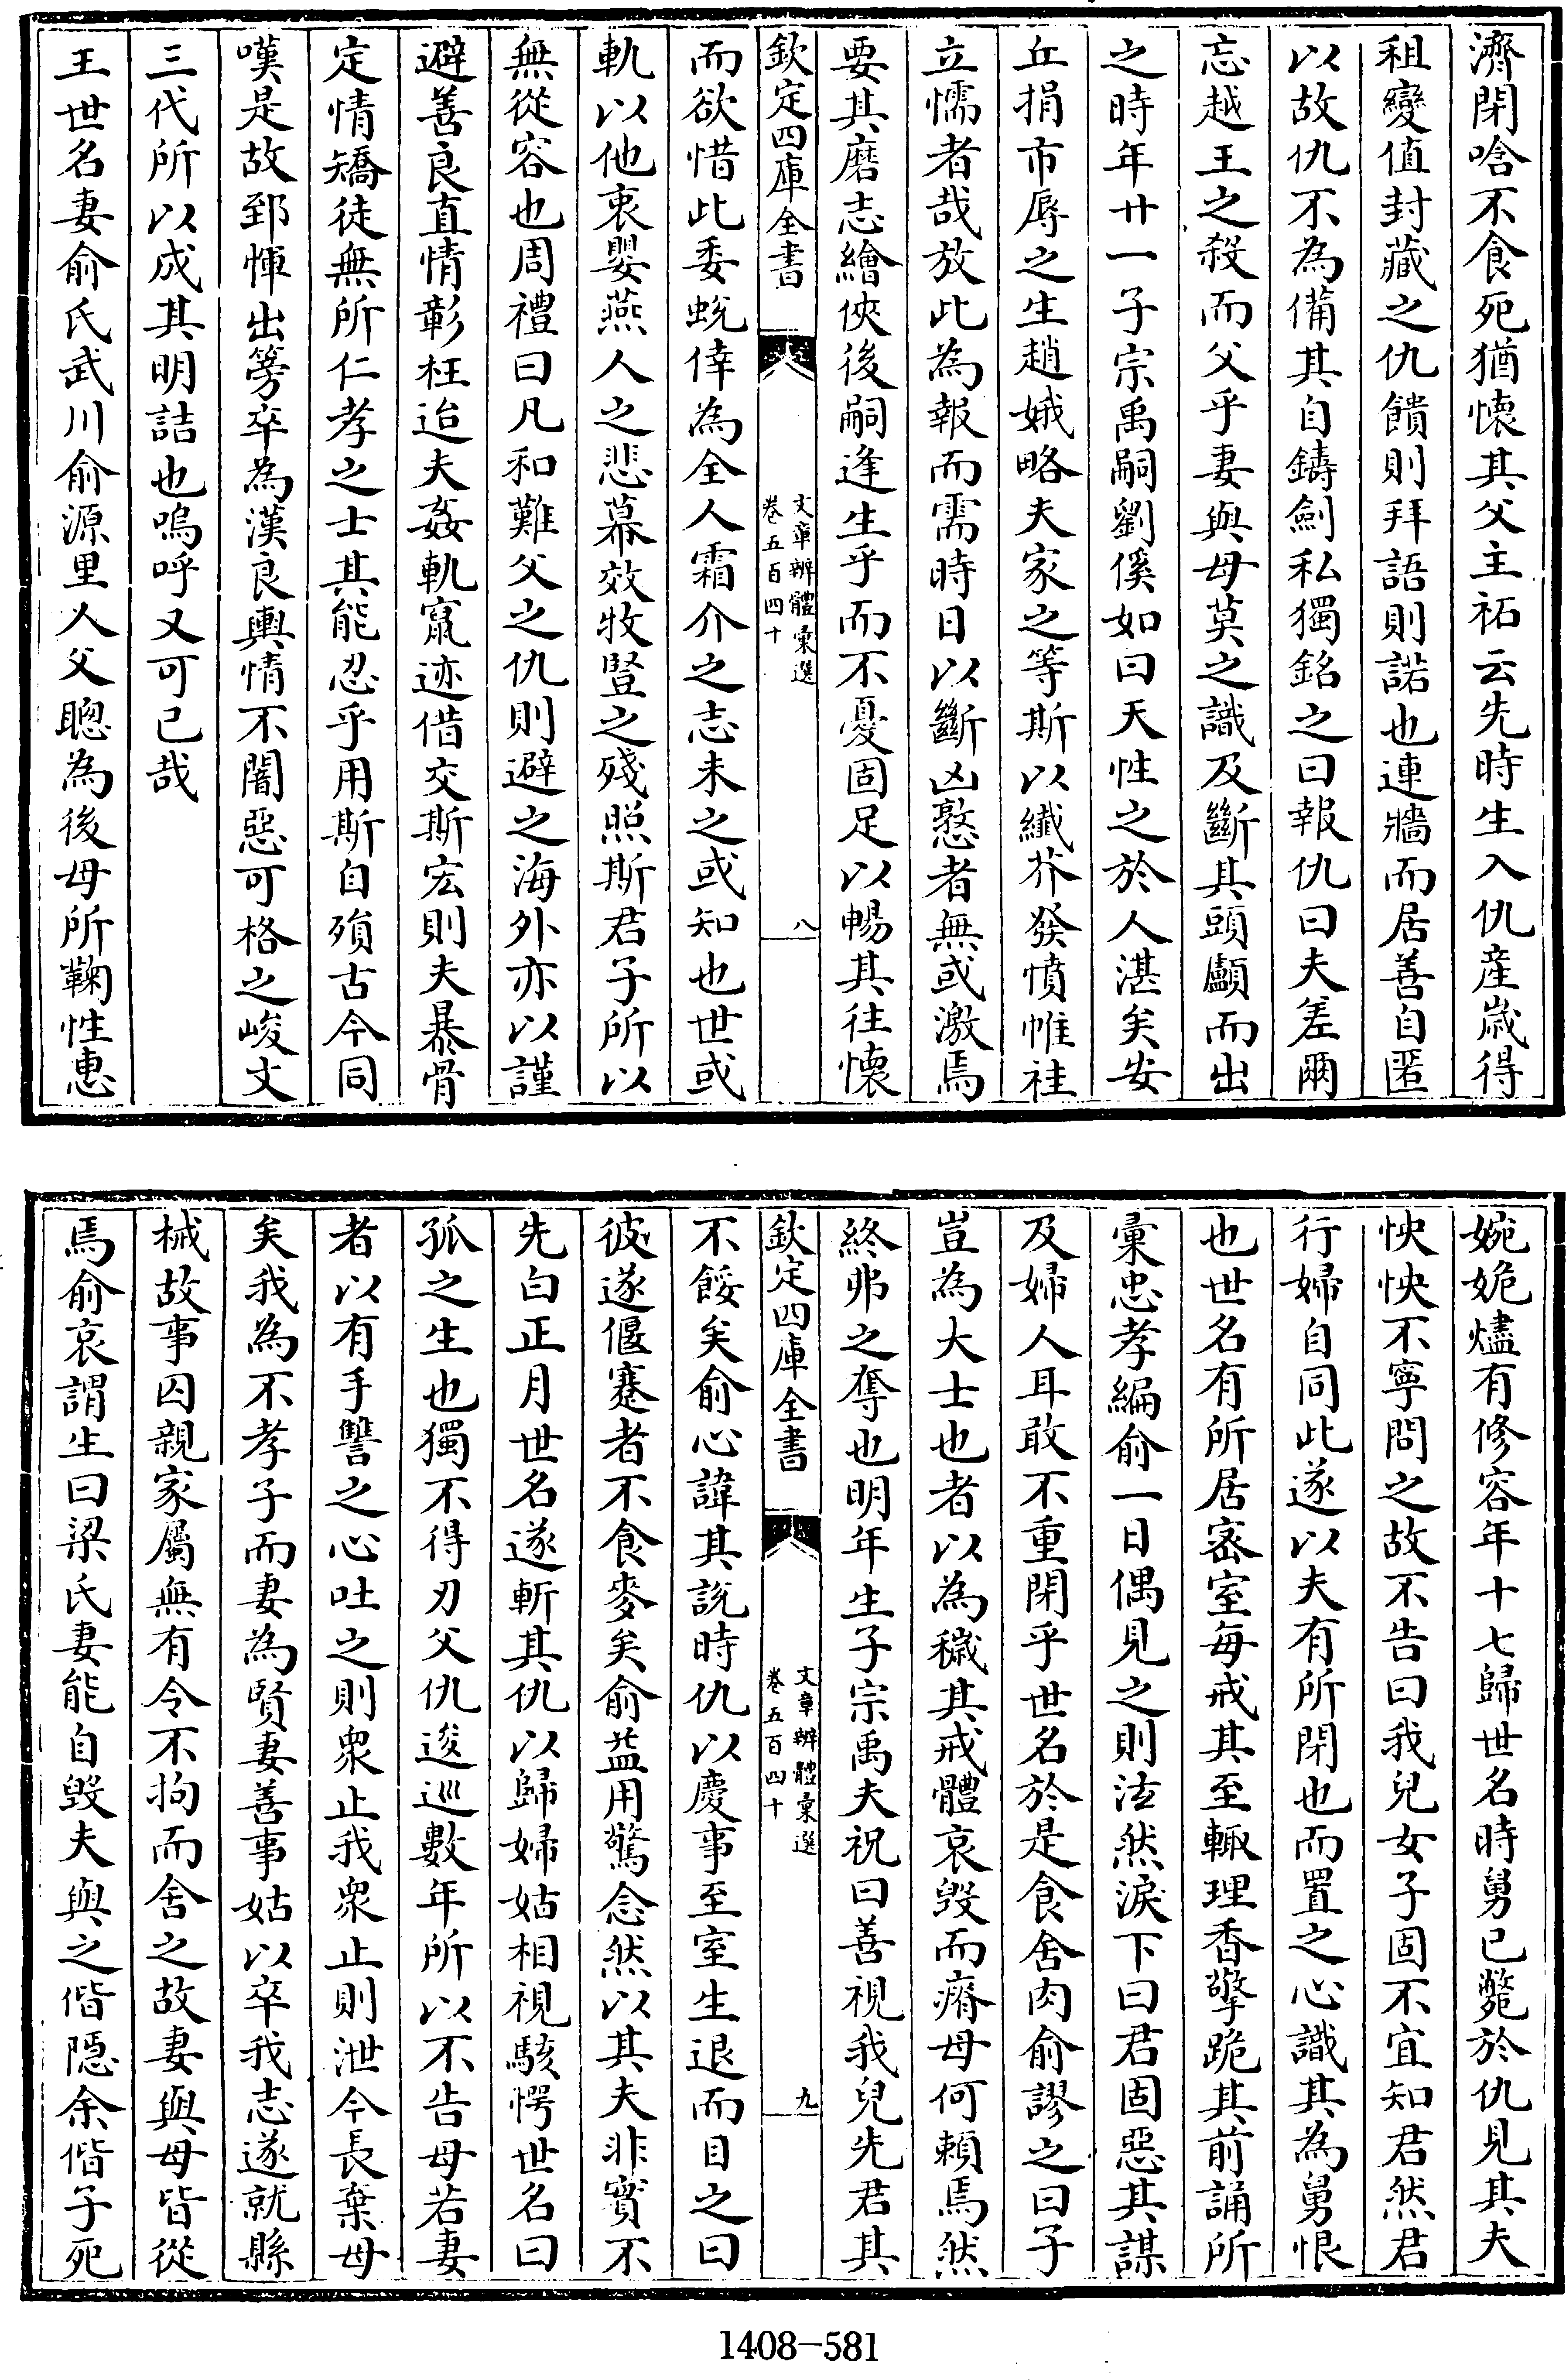 濟閉唅不食死猶懷其父主祏云先時生入仇產歲得
租變值封藏之仇饋則拜語則諾也連牆而居善自匿
以故仇不為備其自鑄劍私獨銘之曰報仇曰夫差爾
忘越王之殺而父乎妻與母莫之識及斷其頭顱而出
之時年廿一子宗禹嗣劉傒如曰天性之於人湛矣安
丘捐市辱之生趙娥略夫家之等斯以纖芥發憤帷袿
立懦者哉放此為報而需時日以斷凶憝者無或激焉
要其磨志繪俠後嗣逢生乎而不憂固足以暢其往懷
欽定四庫全書
文章辨體彙選
卷五百四十
八
而欲惜此委蛻倖為全人霜介之志未之或知也世或
軌以他衷嬰燕人之悲幕效牧豎之殘照斯君子所以
無從容也周禮曰凡和難父之仇則避之海外亦以謹
避善良直情彰枉迨夫姦軌竄迹借交斯宏則夫暴骨
定情矯徒無所仁孝之士其能忍乎用斯自殞古今同
嘆是故郅惲出篣卒為漢良輿情不闇惡可格之峻文
三代所以成其明詰也嗚呼又可已哉
王世名妻俞氏武川俞源里人父聰為後母所鞠性惠
婉姽㜳有修容年十七歸世名時舅已斃於仇見其夫
怏怏不寧問之故不告曰我兒女子固不宜知君然君
行婦自同此遂以夫有所閉也而置之心識其為舅恨
也世名有所居密室每戒其至輙理香擎跪其前誦所
彙忠孝編俞一日偶見之則泫然淚下曰君固惡其謀
及婦人耳敢不重閉乎世名於是食舍肉俞謬之曰子
豈為大士也者以為穢其戒體哀毀而瘠母何賴焉然
終弗之奪也明年生子宗禹夫祝曰善視我兒先君其
欽定四庫全書
文章辨體彙選
卷五百四十
九
不餒矣俞心諱其說時仇以慶事至室生退而目之曰
彼遂偃蹇者不食麥矣俞益用驚念然以其夫非實不
先白正月世名遂斬其仇以歸婦姑相視駭愕世名曰
孤之生也獨不得刃父仇逡巡數年所以不告母若妻
者以有手讐之心吐之則衆止我衆止則泄今長棄母
矣我為不孝子而妻為賢妻善事姑以卒我志遂就縣
械故事囚親家屬無有令不拘而舍之故妻與母皆從
焉俞哀謂生曰梁氏妻能自毀夫與之偕隱余偕子死
1408-581